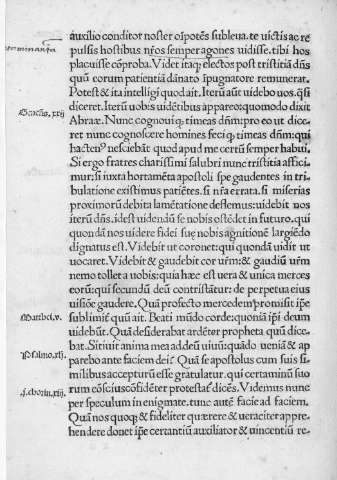 auxilio conditor noster oīpotẽs subleua. te uictis ac re
pulsis hostibus nr̃os semper agones uidisse. tibi hos
placuisse cōproba. Videt itaq; electos post tristitiā dñs
quū eorum patientiā dānato īpugnatore remunerat.
Potest & ita intelligi quod ait. Iterū aūt uidebo uos. q̃si
diceret. Iterū uobis uidẽtibus appareo: quomodo dixit
Genesis. xxij
Abraæ. Nunc cognoui q; timeas dñm: pro eo ut dice
ret nunc cognoscere homines feci q; timeas dñm: qui
hactenꝰ nesciebāt quod apud me certū semper habui.
Si ergo fratres charissimi salubri nunc tristitia affici
mur: si iuxta hortamẽta apostoli spe gaudentes in tri
bulatione existimus patiẽtes. si nr̃a errata. si miserias
proximorū debita lamẽtatione deflemus: uidebit nos
iterū dñs. idest uidendū se nobis ostẽdet in futuro. qui
quondā nos uidere fidei suę nobis agnitionẽ largiẽdo
dignatus est. Videbit ut coronet: qui quondā uidit ut
uocaret. Videbit & gaudebit cor ur̃m: & gaudiū ur̃m
nemo tollet a uobis: quia hæc est uera & unica merces
eorū: qui secundū deū contristātur: de perpetua eius
uisiōe gaudere. Quā profecto mercedem promisit ip̃e
Matthei. v.
sublimiꝰ quū ait. Beati mūdo corde: quoniā ip̃i deum
uidebūt. Quā desiderabat ardẽter propheta quū dice
Psalmo. xlj.
bat. Sitiuit anima mea ad deū uiuū: quādo ueniā & ap
parebo ante faciem dei? Quā se apostolus cum suis si
milibus accepturū esse gratulatur. qui certaminū suo
j. chorin. xiij.
rum cōscius cōfidẽter protestaꝰ dicẽs. Videmus nunc
per speculum in enigmate. tunc autẽ facie ad faciem.
Quā nos quoq; & fideliter quærere & ueraciter appre
hendere donet ip̃e certantiū auxiliator & uincentiū re-